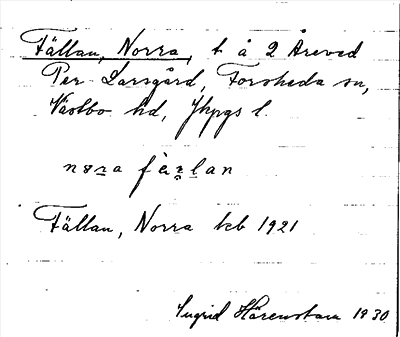 Fällan, Norra, t å 2 Åreved
Per Larsgård, Forsheda sn,
Västbo hd, Jkpgs l.
Fällan, Norra beb 1921
Ingrid Härenstam 1930